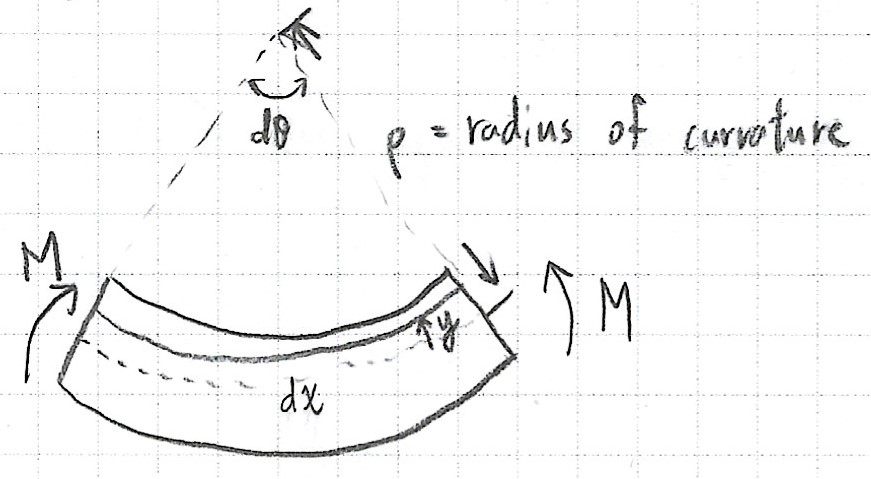 dθ
ρ = radius of curvature
M
M
y
dx